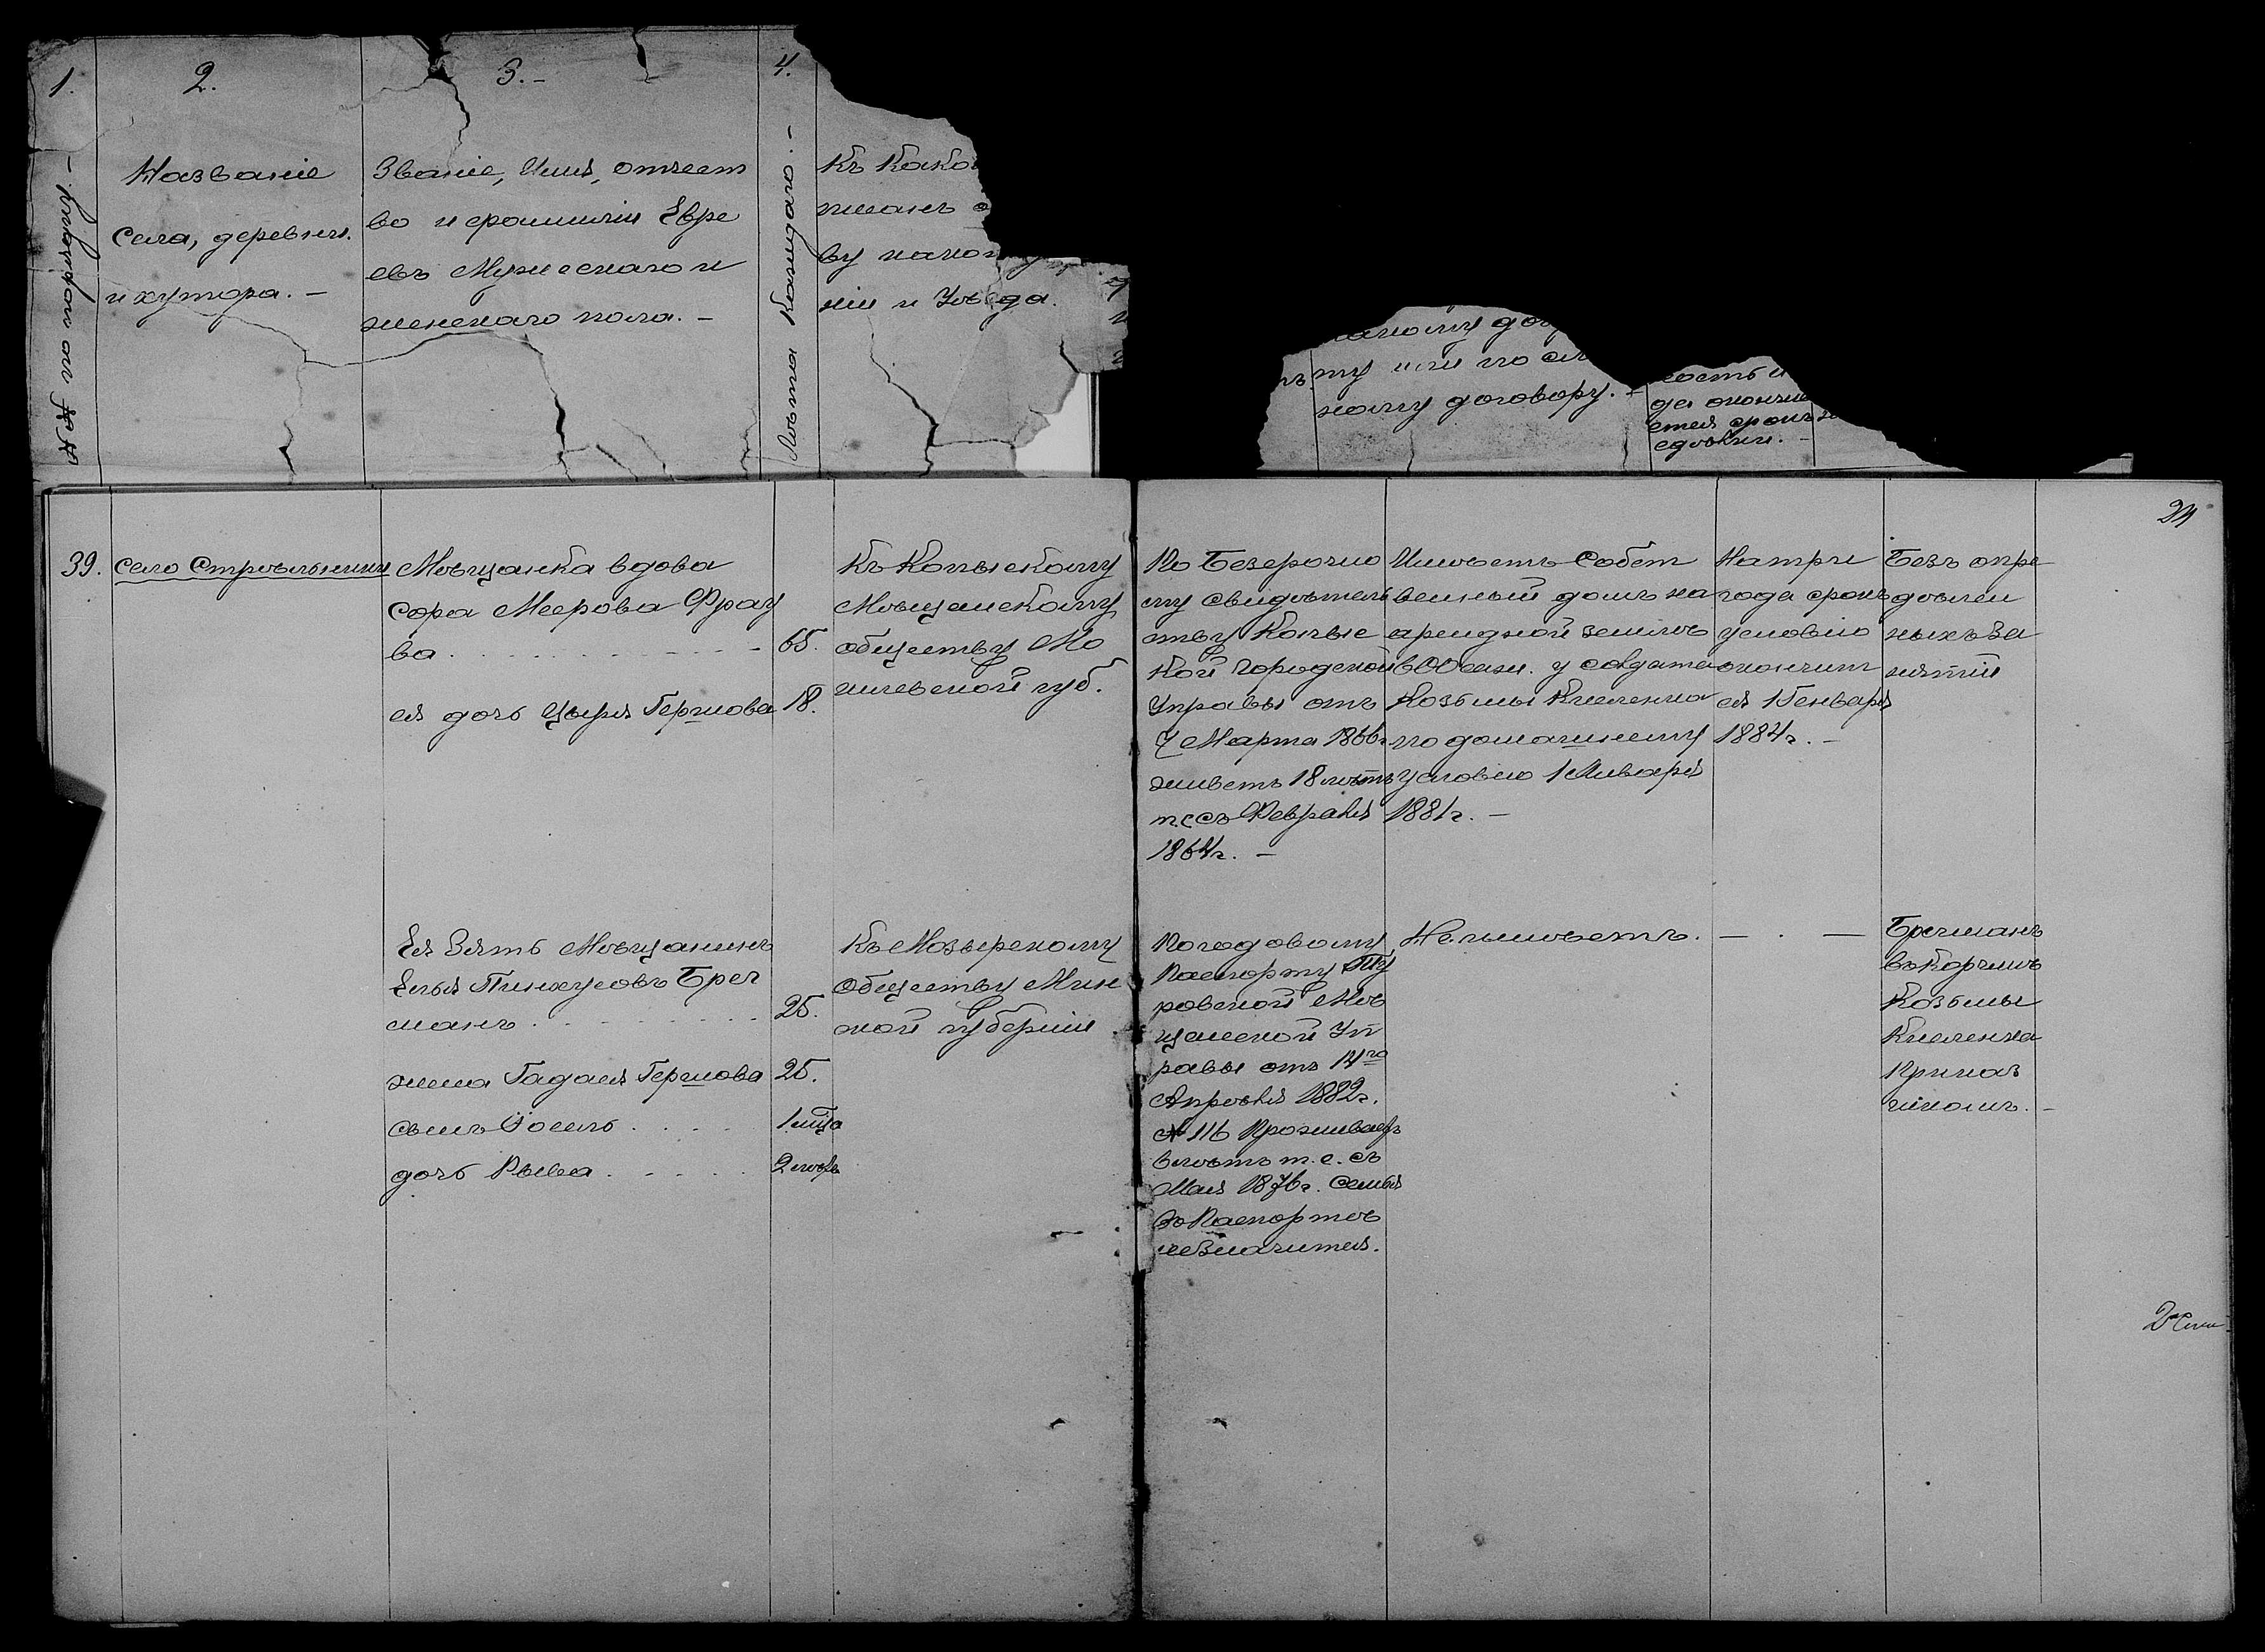 1.
№№ по порядку. –
2.
Названіе
села, деревни.
и хутора. –
3. –
Званіе, Имя, отчест
во и фамиліи Евре
евъ Мужескаго и
женскаго пола. –
4.
Лѣта каждаго. –
Къ како
писанъ
ву како
ніи и Уѣзда.
му или по сл
ному договору. –
ность и
да окончи
ется срокъ
24
39.
село Строѣльники
Мѣщанка вдова
Сора Меерова Фрау
ва
65.
ея дочь Цыря Гершова
18.
Къ Копыскому
Мѣщанскому
обществу Мо
гилевской губ.
По безсрочно
му свидѣтель
ству Копыс
кой Городской
Управы отъ
7 Марта 1866г.
живетъ 18 лѣтъ
т.е съ Февраля
1864г. –
Имѣетъ Собст
венный домъ на
арендной землѣ
у солдата
Козьмы Киселенка
по домашнему
условію 1 Января
1881г. –
На три
года срокъ
условію
окончит
ся 1 Генваря
1884г. –
Безъ опре
дѣлен
ныхъ за
нятій
Ея Зять Мѣщанинъ
Елья Пинхусовъ Брег
манъ
25.
жена Гадася Гершова
25.
сынъ Іосель
1 м–ца
дочь Рыва
2 лѣтъ
Къ Мозырскому
обществу Мин
ской губерніи
По годовому
Паспорту Ту
ровской Мѣ
щанской Уп
равы отъ 14го
Апрѣля 1882г.
№ 116 Проживаетъ
6 лѣтъ т.е. съ
Мая 1876г. семья
въ Паспортѣ
не значится.
Не имѣетъ.
— . —
Брегманъ
въ корчмѣ
Козьмы
Киселенка
Приказ
чикомъ. –